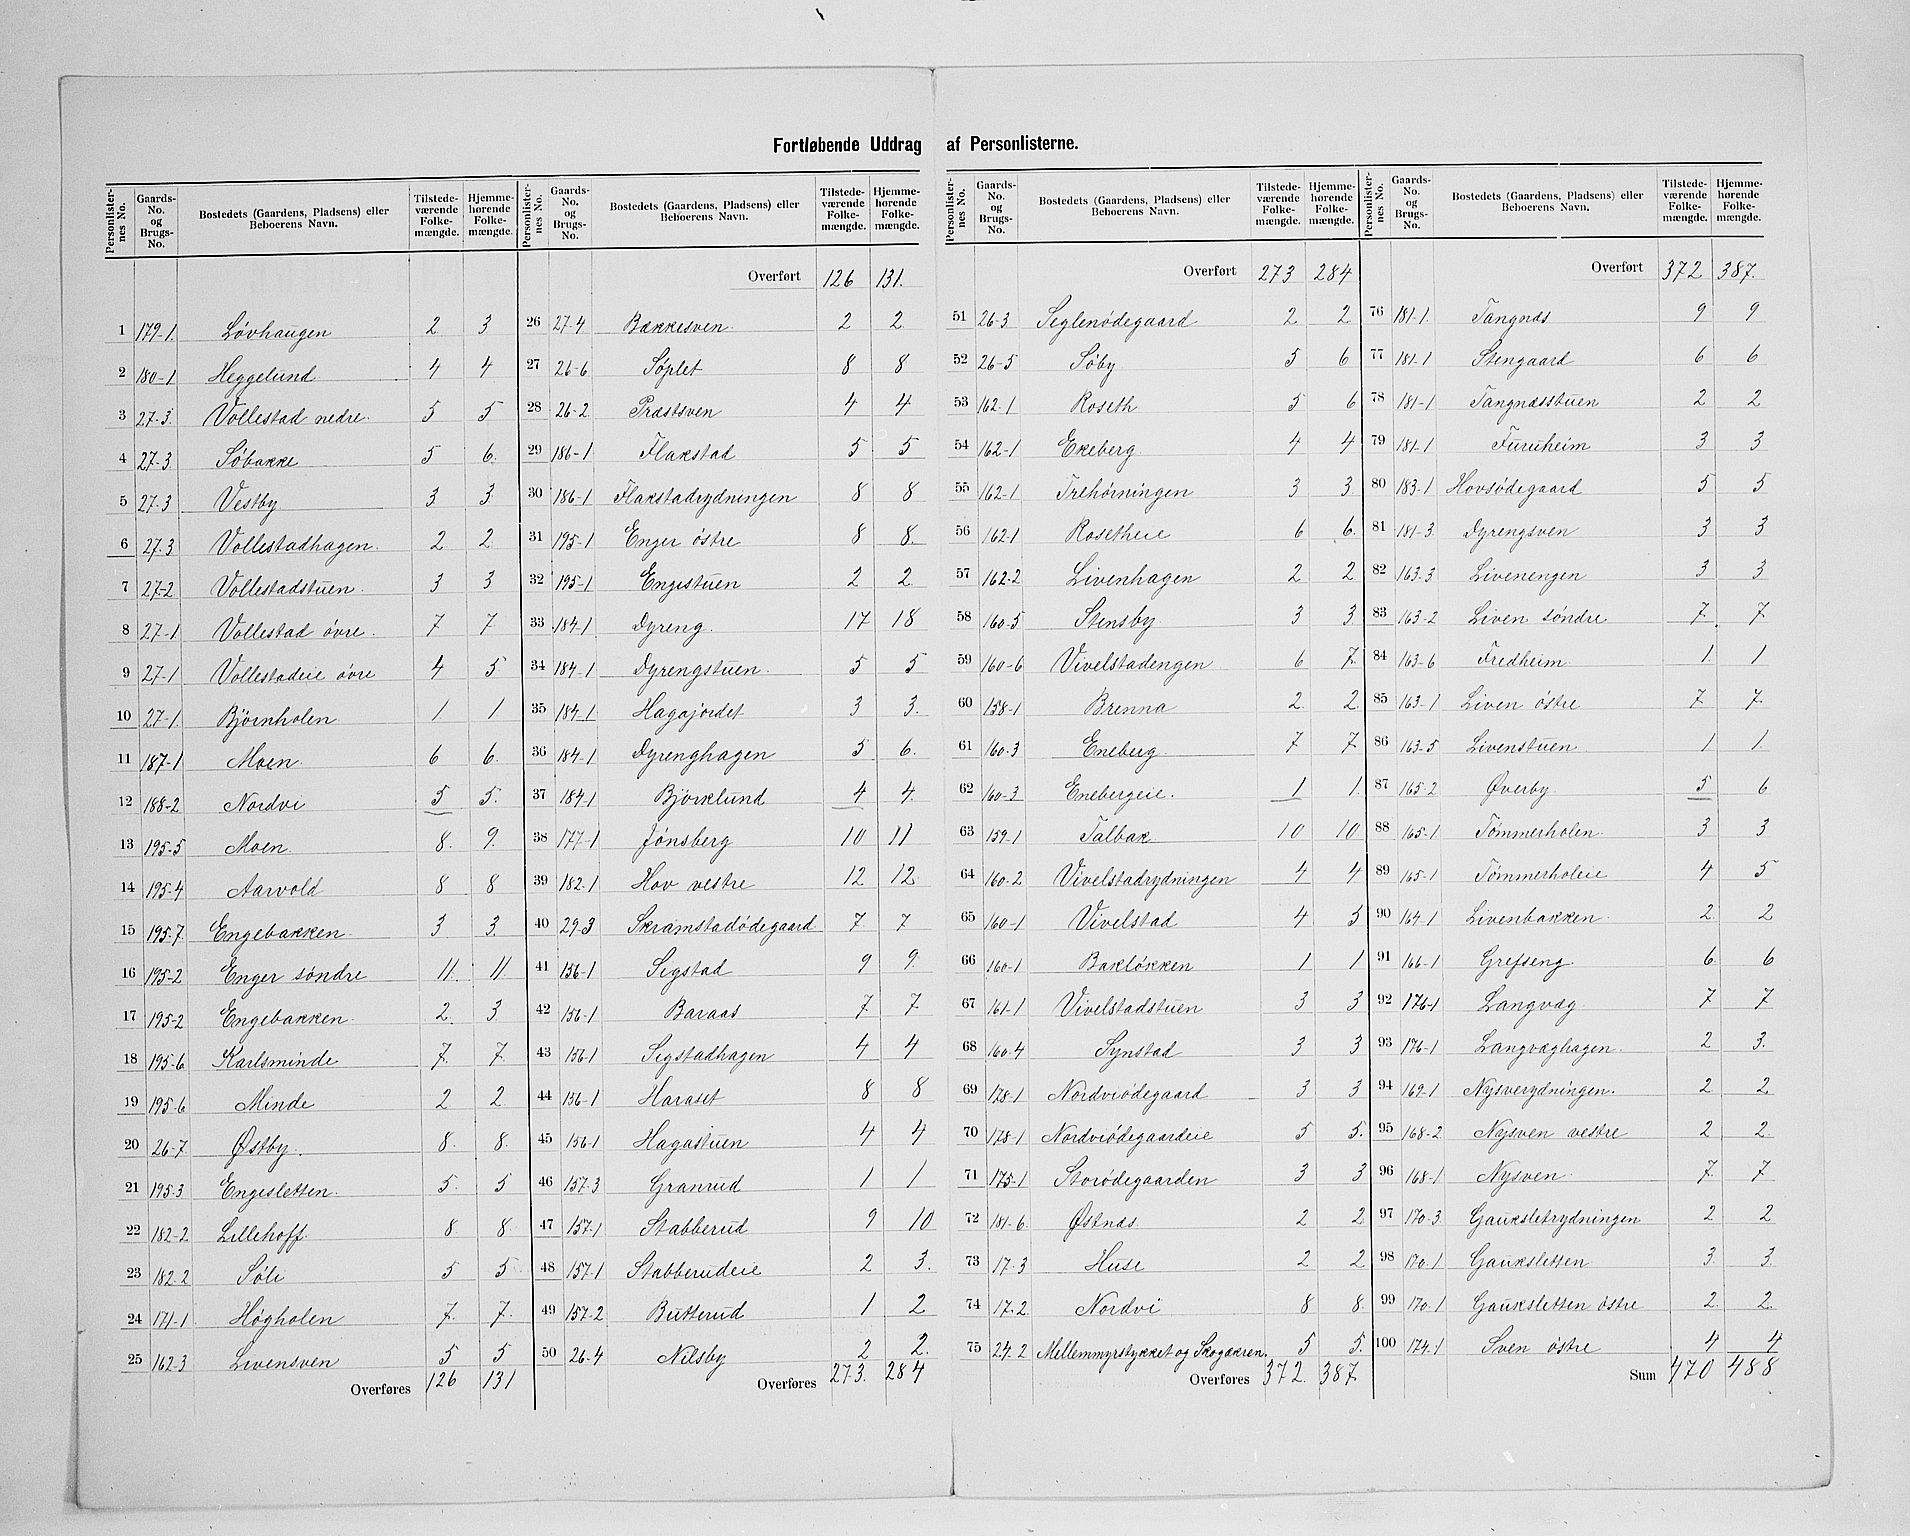 Fortløbende Uddrag af Personlisterne.
Personlister-nes No. | Gaards-No. og Brugs-No. | Bostedets (Gaardens, Pladsens) eller Beboerens Navn. | Tilstede-værende Folke-mængde. | Hjemme-hørende Folke-mængde.
1 179-1. Løvhaugen 2 3
2 180-1 Heggelund 4 4
3 27-3. Vollestad nedre. 5 5
4 27-3 Søbakke 5 6.
5 27-3 Vestby 3 3
6 27-3 Vollestadhagen. 2 2
7 27-2 Vollestadstuen. 3 3
8 27-1 Vollestad øvre. 7 7
9 27-1 Vollestadeie øvre 4 5
10 27-1. Bjørnholen 1 1
11 187-1 Moen. 6 6.
12 188-2 Nordvi 5 5.
13 195-5 Moen. 8. 9.
14 195-4 Aarvold 8 8
15 195-7 Engebakken. 3 3.
16 195-2 Enger søndre 11. 11.
17 195-2 Engebakken. 2. 3
18 195-6 Karlsminde 7. 7.
19 195-6 Minde 2 2.
20 26-7 Østby. 8. 8.
21 195-3 Engesletten. 5. 5
22 182-2 Lillehoff. 8 8
23 182-2 Søli 5 5
24 171-1 Høgholen 7. 7.
25 162-3 Livensven 5 5
Overføres 126 131
Personlister-nes No. | Gaards-No. og Brugs-No. | Bostedets (Gaardens, Pladsens) eller Beboerens Navn. | Tilstede-værende Folke-mængde. | Hjemme-hørende Folke-mængde.
Overført 126 131.
26 27-4 Bækkesven. 2 2.
27 26-6 Søplet 8 8
28 26-2 Præstsven 4 4
29 186-1 Flakstad 5 5
30 186-1 Flakstadrydningen 8 8
31 195-1 Enger østre 8 8.
32 195-1 Engistuen 2 2.
33 184-1 Dyreng. 17 18
34 184-1 Dyrengstuen. 5 5
35 184-1 Hagajordet 3 3.
36 184-1 Dyrenghagen 5 6.
37 184-1 Bjørklund 4 4.
38 177-1 Jønsberg 10 11
39 182-1 Hov vestre 12 12
40 29-3 Skramstadødegaard 7 7
41 156-1 Sigstad 9 9.
42 156-1 Baraas 7 7
43 156-1 Sigstadhagen 4 4
44 156-1 Haraset 8 8
45 156-1 Hagastuen 4 4
46 157-3 Granrud 1 1
47 157-1 Stabberud 9 10
48 157-1 Stabberudeie 2 3.
49 157-2 Butterud 1 2
50 26-4 Nilsby 2 2.
Overføres 273. 284
Personlister-nes No. | Gaards-No. og Brugs-No. | Bostedets (Gaardens, Pladsens) eller Beboerens Navn. | Tilstede-værende Folke-mængde. | Hjemme-hørende Folke-mængde.
Overført 273 284
51 26-3 Seglenødegaard 2 2
52 26-5 Søby 5 6
53 162-1 Roseth 5 6
54 162-1 Ekeberg. 4 4
55 162-1 Trehørningen 3 3
56 162-1 Rosetheie 6 6.
57 162-2 Livenhagen 2 2
58 160-5 Stensby. 3 3
59 160-6 Vivelstadengen. 6 7.
60 158-1 Brenna 2. 2.
61 160-3 Eneberg. 7 7
62 160-3 Enebergeie. 1 1.
63 159-1 Talbak 10 10
64 160-2 Vivelstadrydningen 4 4
65 160-1 Vivelstad 4 5
66 160-1 Bakløkken 1 1
67 161-1 Vivelstadstuen 3 3
68 160-4 Synstad 3 3
69 178-1 Nordviødegaard 3 3
70 178-1 Nordviødegaardeie 5 5.
71 175-1 Storødegaarden 3 3
72 181-6 Østnæs 2 2
73 17-3 Huse 2 2
74 17-2. Nordvi 8 8.
75 24-2 Mellemmyrstykket og Skogakren. 5 5.
Overføres 372. 387.
Personlister-nes No. | Gaards-No. og Brugs-No. | Bostedets (Gaardens, Pladsens) eller Beboerens Navn. | Tilstede-værende Folke-mængde. | Hjemme-hørende Folke-mængde.
Overført 372. 387.
76 181-1. Tangnæs 9 9
77 181-1 Stengaard 6 6
78 181-1 Tangnæsstuen 2 2
79 181-1 Furuheim 3 3
80 183-1 Hovsødegaard 5 5
81 181-3. Dyrengsven 3 3
82 163-3 Livenengen 3 3
83 163-2 Liven søndre 7. 7
84 163-6 Fredheim. 1. 1
85 163-1 Liven østre 7 7.
86 163-5 Livenstuen. 1 1.
87 165-2 Øverby. 5 6
88 165-1 Tømmerholen. 3 3
89 165-1 Tømmerholeie 4 5
90 164-1 Livenbakken. 2. 2
91 166-1 Grefseng. 6 6
92 176-1 Langvæg 7 7
93 176-1 Langvæghagen. 2 3.
94 169-1 Nysverydningen. 2 2.
95 168-2 Nysven vestre 2 2.
96 168-1 Nysven. 7. 7
97 170-3 Gaukslетrydningen 2 2
98 170-1 Gauksletten. 3. 3.
99 170-1 Gauksletten østre 2. 2.
100 174-1 Sven østre 4 4
Sum 470 488